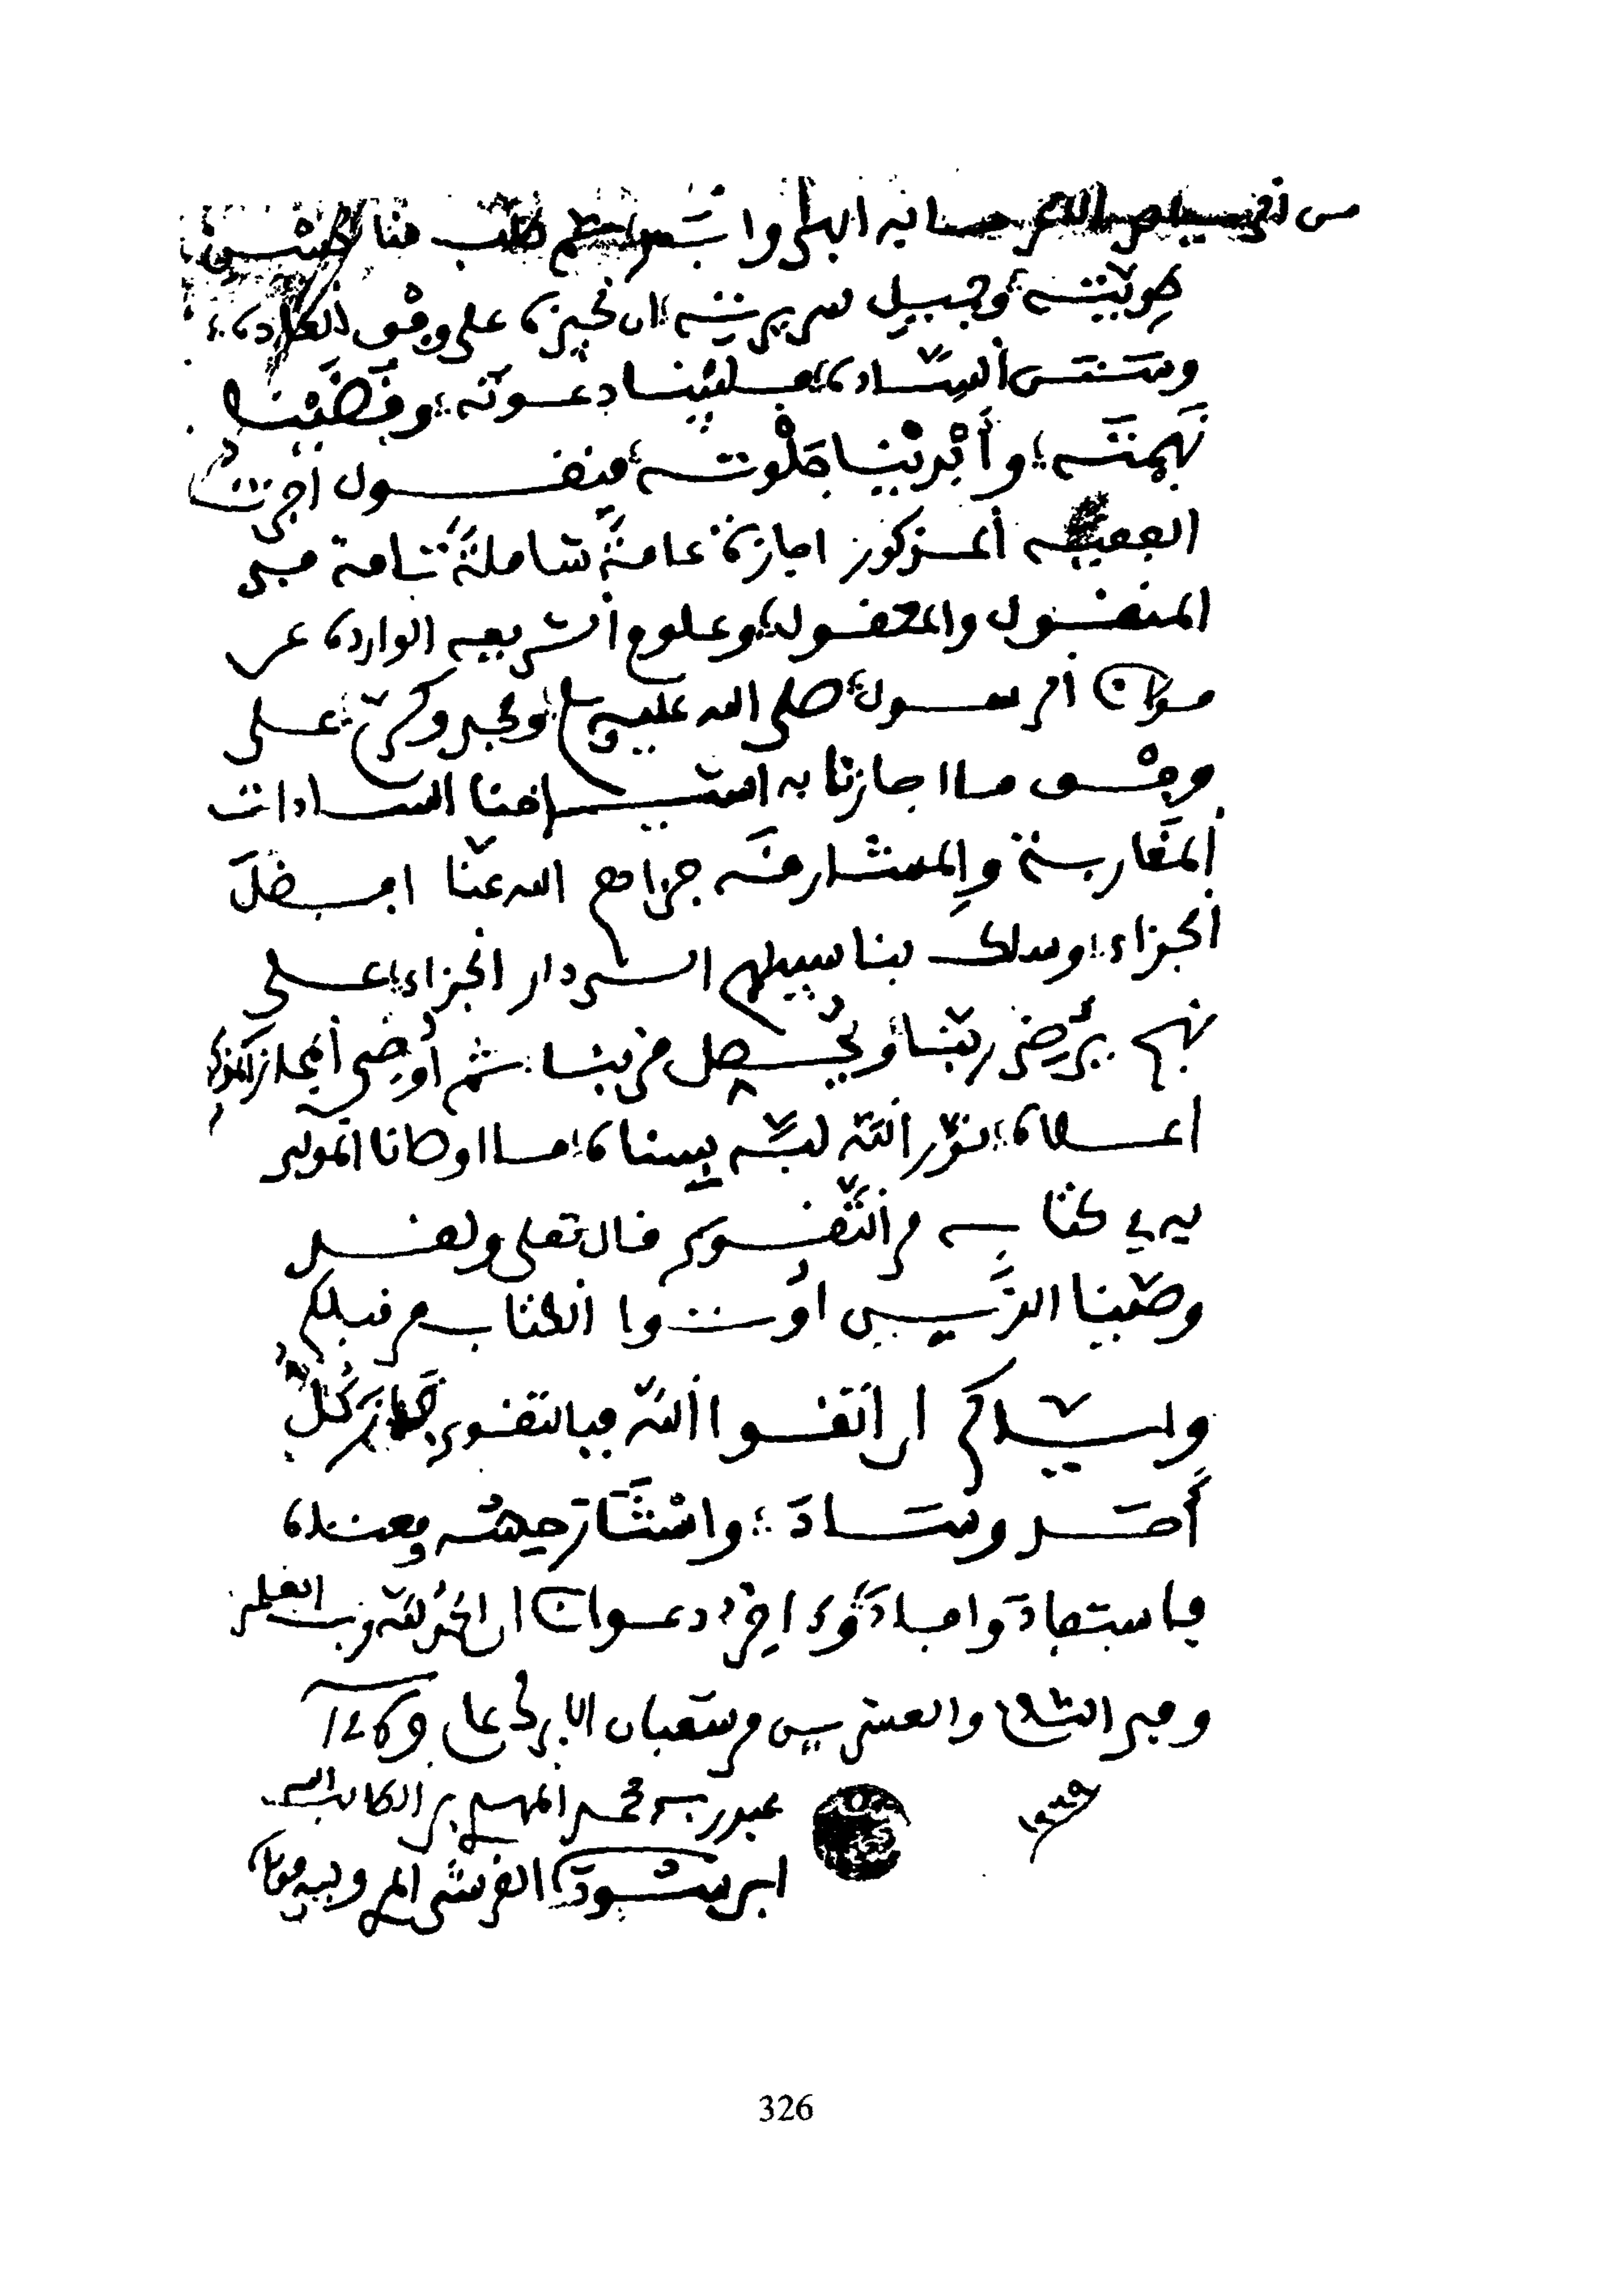 طلب منا لحسن
طويته؛ وجميل سريرته؛ ان نجيزه على وفق العادة؛
وسنن السّادة؛ فلبّينا دعوته؛ وقَضَيْنا
نَهمته؛ وأَبْرزْنا جَلْوته؛ فنقول أجزتُ
الفقيه المذكور اجازة عامةً شاملةً تامة في
المنقول والمعقول؛ وعلوم الشريعه الواردة عن
مولانا الرسول؛ صلى الله عليه وسلم؛ ومجد وكرّم؛ على
وفْق ما اجازنا به اشياخنا السادات
المَغاربة والمشارقَه جزاهم الله عنّا افضلَ
الجزاء؛ وسلك بنا سبيلهم الى دار الجزاء؛ على
نهج يُرضي ربّنا؛ ويُحصل قربنا؛ ثم اُوصي المجاز المذكور
اعلاه؛ نوّر اللّه لبّه بسناه؛ ما اوصانا المولى
به في كتابه من التّقوى قال تعلى ولقد
وصّينا الذين اُوتوا الكتاب من قبلكم
وايّاكم ان اتقوا اللّه فبالتقوى جاز كُلّ
أحد وسَادَ؛ واسْتَنَار جيهته وعنده
فاستفادَ وافادَ؛ وءاخر دعوانا ان الحمد للّه رب العلمين
وفي الثالث والعشرين من شعبان الابرك عام 1406
عبد ربه محمد المهدي بن الطالب
ابن سودة القرشي المري وليه مولاه
326